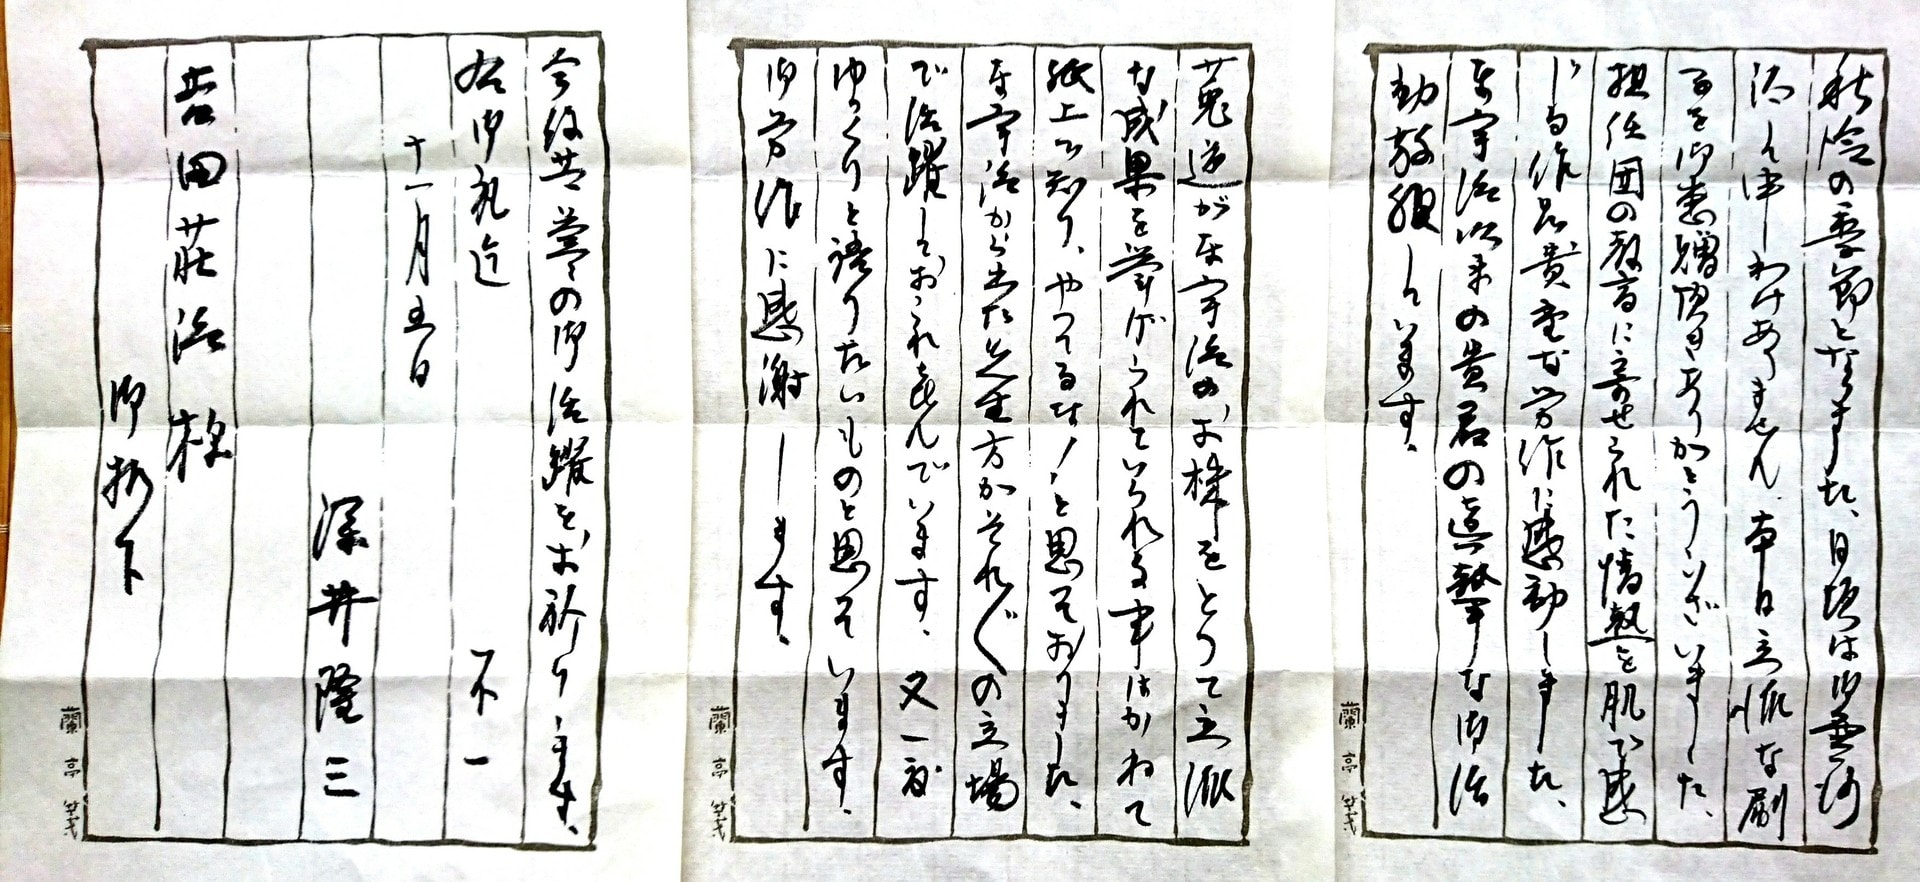 秋冷の季節となりました、日頃は御無沙
汰し申しわけありません、本日立派な刷
子を御恵贈頂きありがとうございました、
担任団の教育に寄せられた情熱を肌で感
じる作品貴重な労作に感動しました、
東宇治以来の貴君の真摯な御活
動敬服しています。
蘭亭箋
菟道が東宇治のお株をとって立派
な成果を挙げられていられる事はかねて
紙上で知り、やってるな!と思っておりました、
東宇治から出た先生方がそれ〴〵の立場
で活躍しておられ喜んでいます、又一度
ゆっくりと語りたいものと思っています、
御労作に感謝します、
蘭亭箋
今後益々の御活躍をお祈りします、
右御礼迄 不一
十一月五日
深井隆三
田荘治様
御机下
蘭亭箋